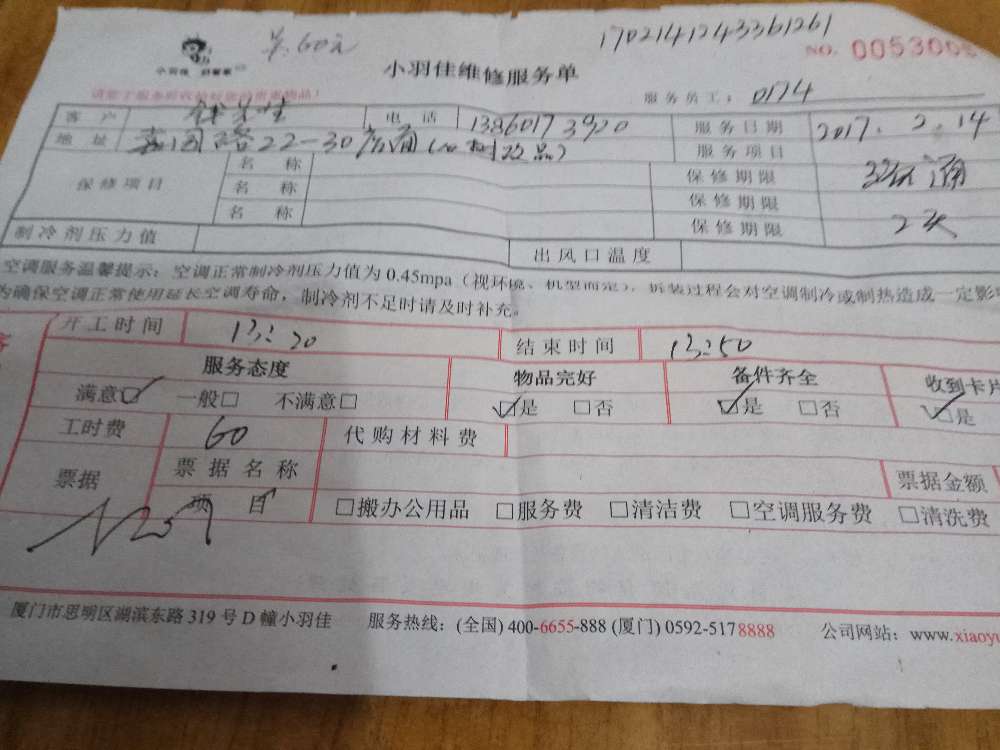 共60元
1702141243361261
小羽佳 好管家
小羽佳维修服务单
NO. 005300
请您于服务前收好您的贵重物品!
服务员工: 0174
客户
电话
服务日期 2017.2.14
地址 22-30
服务项目
保修项目
名称
保修期限
名称
保修期限
名称
保修期限
2天
制冷剂压力值
出风口温度
空调服务温馨提示:空调正常制冷剂压力值为0.45mpa(视环境、机型而定),拆装过程会对空调制冷或制热造成一定影
为确保空调正常使用延长空调寿命,制冷剂不足时请及时补充。
开工时间 13:20
结束时间 13:50
服务态度
物品完好
备件齐全
收到卡片
满意☑ 一般□ 不满意□
☑是 □否
☑是 □否
☑是
工时费 60
代购材料费
票据
票据名称
票据金额
项目
□搬办公用品 □服务费 □清洁费 □空调服务费 □清洗费
厦门市思明区湖滨东路319号D幢小羽佳 服务热线:(全国) 400-6655-888 (厦门) 0592-5178888 公司网站:www.xiaoyu